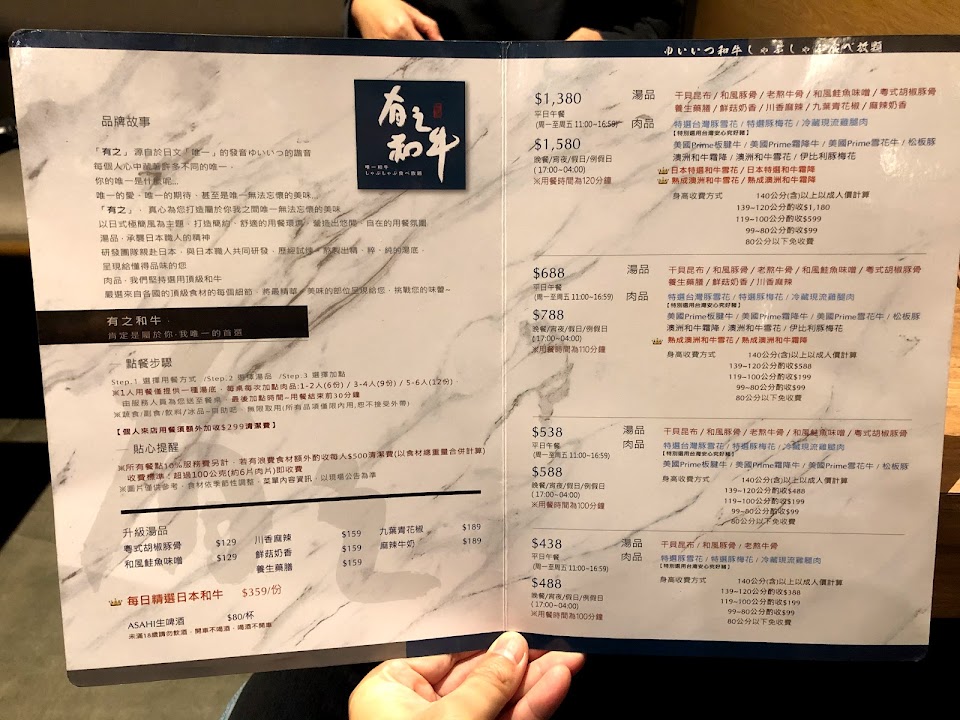 品牌故事
「有之」源自於日文「唯一」的發音ゆいいつ的諧音
每個人心中藏著許多不同的唯一，
你的唯一是什麼呢...
唯一的愛、唯一的期待、甚至是唯一無法忘懷的美味...
「有之」，真心為您打造屬於你我之間唯一無法忘懷的美味
以日式極簡風為主題，打造簡約、舒適的用餐環境，營造出悠閒、自在的用餐氛圍
湯品，承襲日本職人的精神
研發團隊親赴日本，與日本職人共同研發，歷經試煉，熬製出精、粹、純的湯底，
呈現給懂得品味的您
肉品，我們堅持選用頂級和牛
嚴選來自各國的頂級食材的每個細節，將最精華、美味的部位呈現給您，挑戰您的味蕾~
有之和牛
唯一和牛
しゃぶしゃぶ食べ放題
有之和牛，
肯定是屬於你，我唯一的首選
點餐步驟
Step.1 選擇用餐方式 /Step.2 選擇湯品 /Step.3 選擇加點
※1人用餐僅提供一種湯底，每桌每次加點肉品:1-2人(6份) / 3-4人(9份) / 5-6人(12份)，
由服務人員為您送至餐桌，最後加點時間~用餐結束前30分鐘
※蔬食/副食/飲料/冰品~自助吧，無限取用(所有品項僅限內用,恕不接受外帶)
【個人來店用餐須額外加收$299清潔費】
貼心提醒
※所有餐點10%服務費另計，若有浪費食材額外酌收每人$500清潔費(以食材總重量合併計算)
收費標準：超過100公克(約6片肉片)即收費
※圖片僅供參考，食材依季節性調整，菜單內容資訊，以現場公告為準
升級湯品
粵式胡椒豚骨 $129
和風鮭魚味噌 $129
川香麻辣 $159
鮮菇奶香 $159
養生藥膳 $159
九葉青花椒 $189
麻辣牛奶 $189
每日精選日本和牛 $359/份
ASAHI生啤酒 $80/杯
未滿18歲請勿飲酒，開車不喝酒，喝酒不開車
ゆいいつ和牛しゃぶしゃぶ食べ放題
$1,380
平日午餐
(周一至周五 11:00~16:59)
$1,580
晚餐/宵夜/假日/例假日
(17:00~04:00)
※用餐時間為120分鐘
湯品 干貝昆布 / 和風豚骨 / 老熬牛骨 / 和風鮭魚味噌 / 粵式胡椒豚骨
養生藥膳 / 鮮菇奶香 / 川香麻辣 / 九葉青花椒 / 麻辣奶香
肉品 特選台灣豚雪花 / 特選豚梅花 / 冷藏現流雞腿肉
【特別選用台灣安心究好豬】
美國Prime板腱牛 / 美國Prime霜降牛 / 美國Prime雪花牛 / 松板豚
澳洲和牛霜降 / 澳洲和牛雪花 / 伊比利豚梅花
日本特選和牛雪花 / 日本特選和牛霜降
熟成澳洲和牛雪花 / 熟成澳洲和牛霜降
身高收費方式 140公分(含)以上以成人價計算
139~120公分酌收$1,180
119~100公分酌收$599
99~80公分酌收$99
80公分以下免收費
$688
平日午餐
(周一至周五 11:00~16:59)
$788
晚餐/宵夜/假日/例假日
(17:00~04:00)
※用餐時間為110分鐘
湯品 干貝昆布 / 和風豚骨 / 老熬牛骨 / 和風鮭魚味噌 / 粵式胡椒豚骨
養生藥膳 / 鮮菇奶香 / 川香麻辣
肉品 特選台灣豚雪花 / 特選豚梅花 / 冷藏現流雞腿肉
【特別選用台灣安心究好豬】
美國Prime板腱牛 / 美國Prime霜降牛 / 美國Prime雪花牛 / 松板豚
澳洲和牛霜降 / 澳洲和牛雪花 / 伊比利豚梅花
熟成澳洲和牛雪花 / 熟成澳洲和牛霜降
身高收費方式 140公分(含)以上以成人價計算
139~120公分酌收$588
119~100公分酌收$199
99~80公分酌收$99
80公分以下免收費
$538
平日午餐
(周一至周五 11:00~16:59)
$588
晚餐/宵夜/假日/例假日
(17:00~04:00)
※用餐時間為100分鐘
湯品 干貝昆布 / 和風豚骨 / 老熬牛骨 / 和風鮭魚味噌 / 粵式胡椒豚骨
肉品 特選台灣豚雪花 / 特選豚梅花 / 冷藏現流雞腿肉
【特別選用台灣安心究好豬】
美國Prime板腱牛 / 美國Prime霜降牛 / 美國Prime雪花牛 / 松板豚
身高收費方式 140公分(含)以上以成人價計算
139~120公分酌收$488
119~100公分酌收$199
99~80公分酌收$99
80公分以下免收費
$438
平日午餐
(周一至周五 11:00~16:59)
$488
晚餐/宵夜/假日/例假日
(17:00~04:00)
※用餐時間為100分鐘
湯品 干貝昆布 / 和風豚骨 / 老熬牛骨
肉品 特選台灣豚雪花 / 特選豚梅花 / 冷藏現流雞腿肉
【特別選用台灣安心究好豬】
身高收費方式 140公分(含)以上以成人價計算
139~120公分酌收$388
119~100公分酌收$199
99~80公分酌收$99
80公分以下免收費